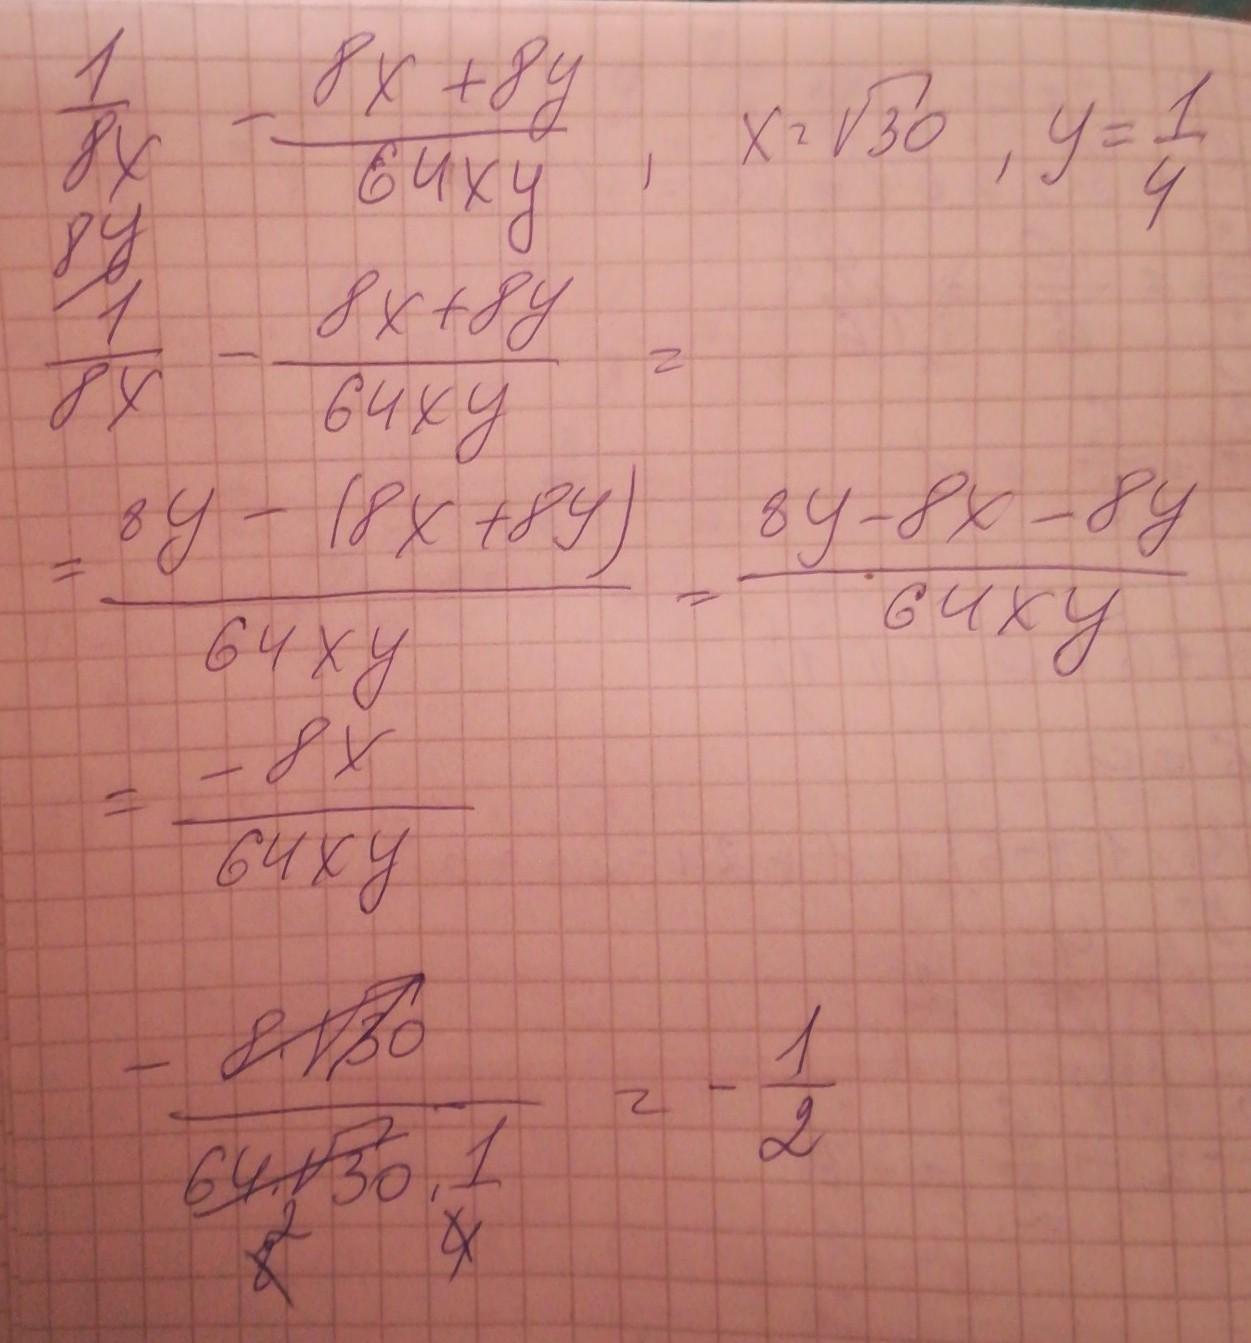 1/8x - (8x + 8y)/64xy, x = √30, y = 1/4
8y
1/8x - (8x + 8y)/64xy =
= (8y - (8x + 8y))/64xy = (8y - 8x - 8y)/64xy
= -8x/64xy
- (8·√30)/(64·√30·1/4) = - 1/2
2
8